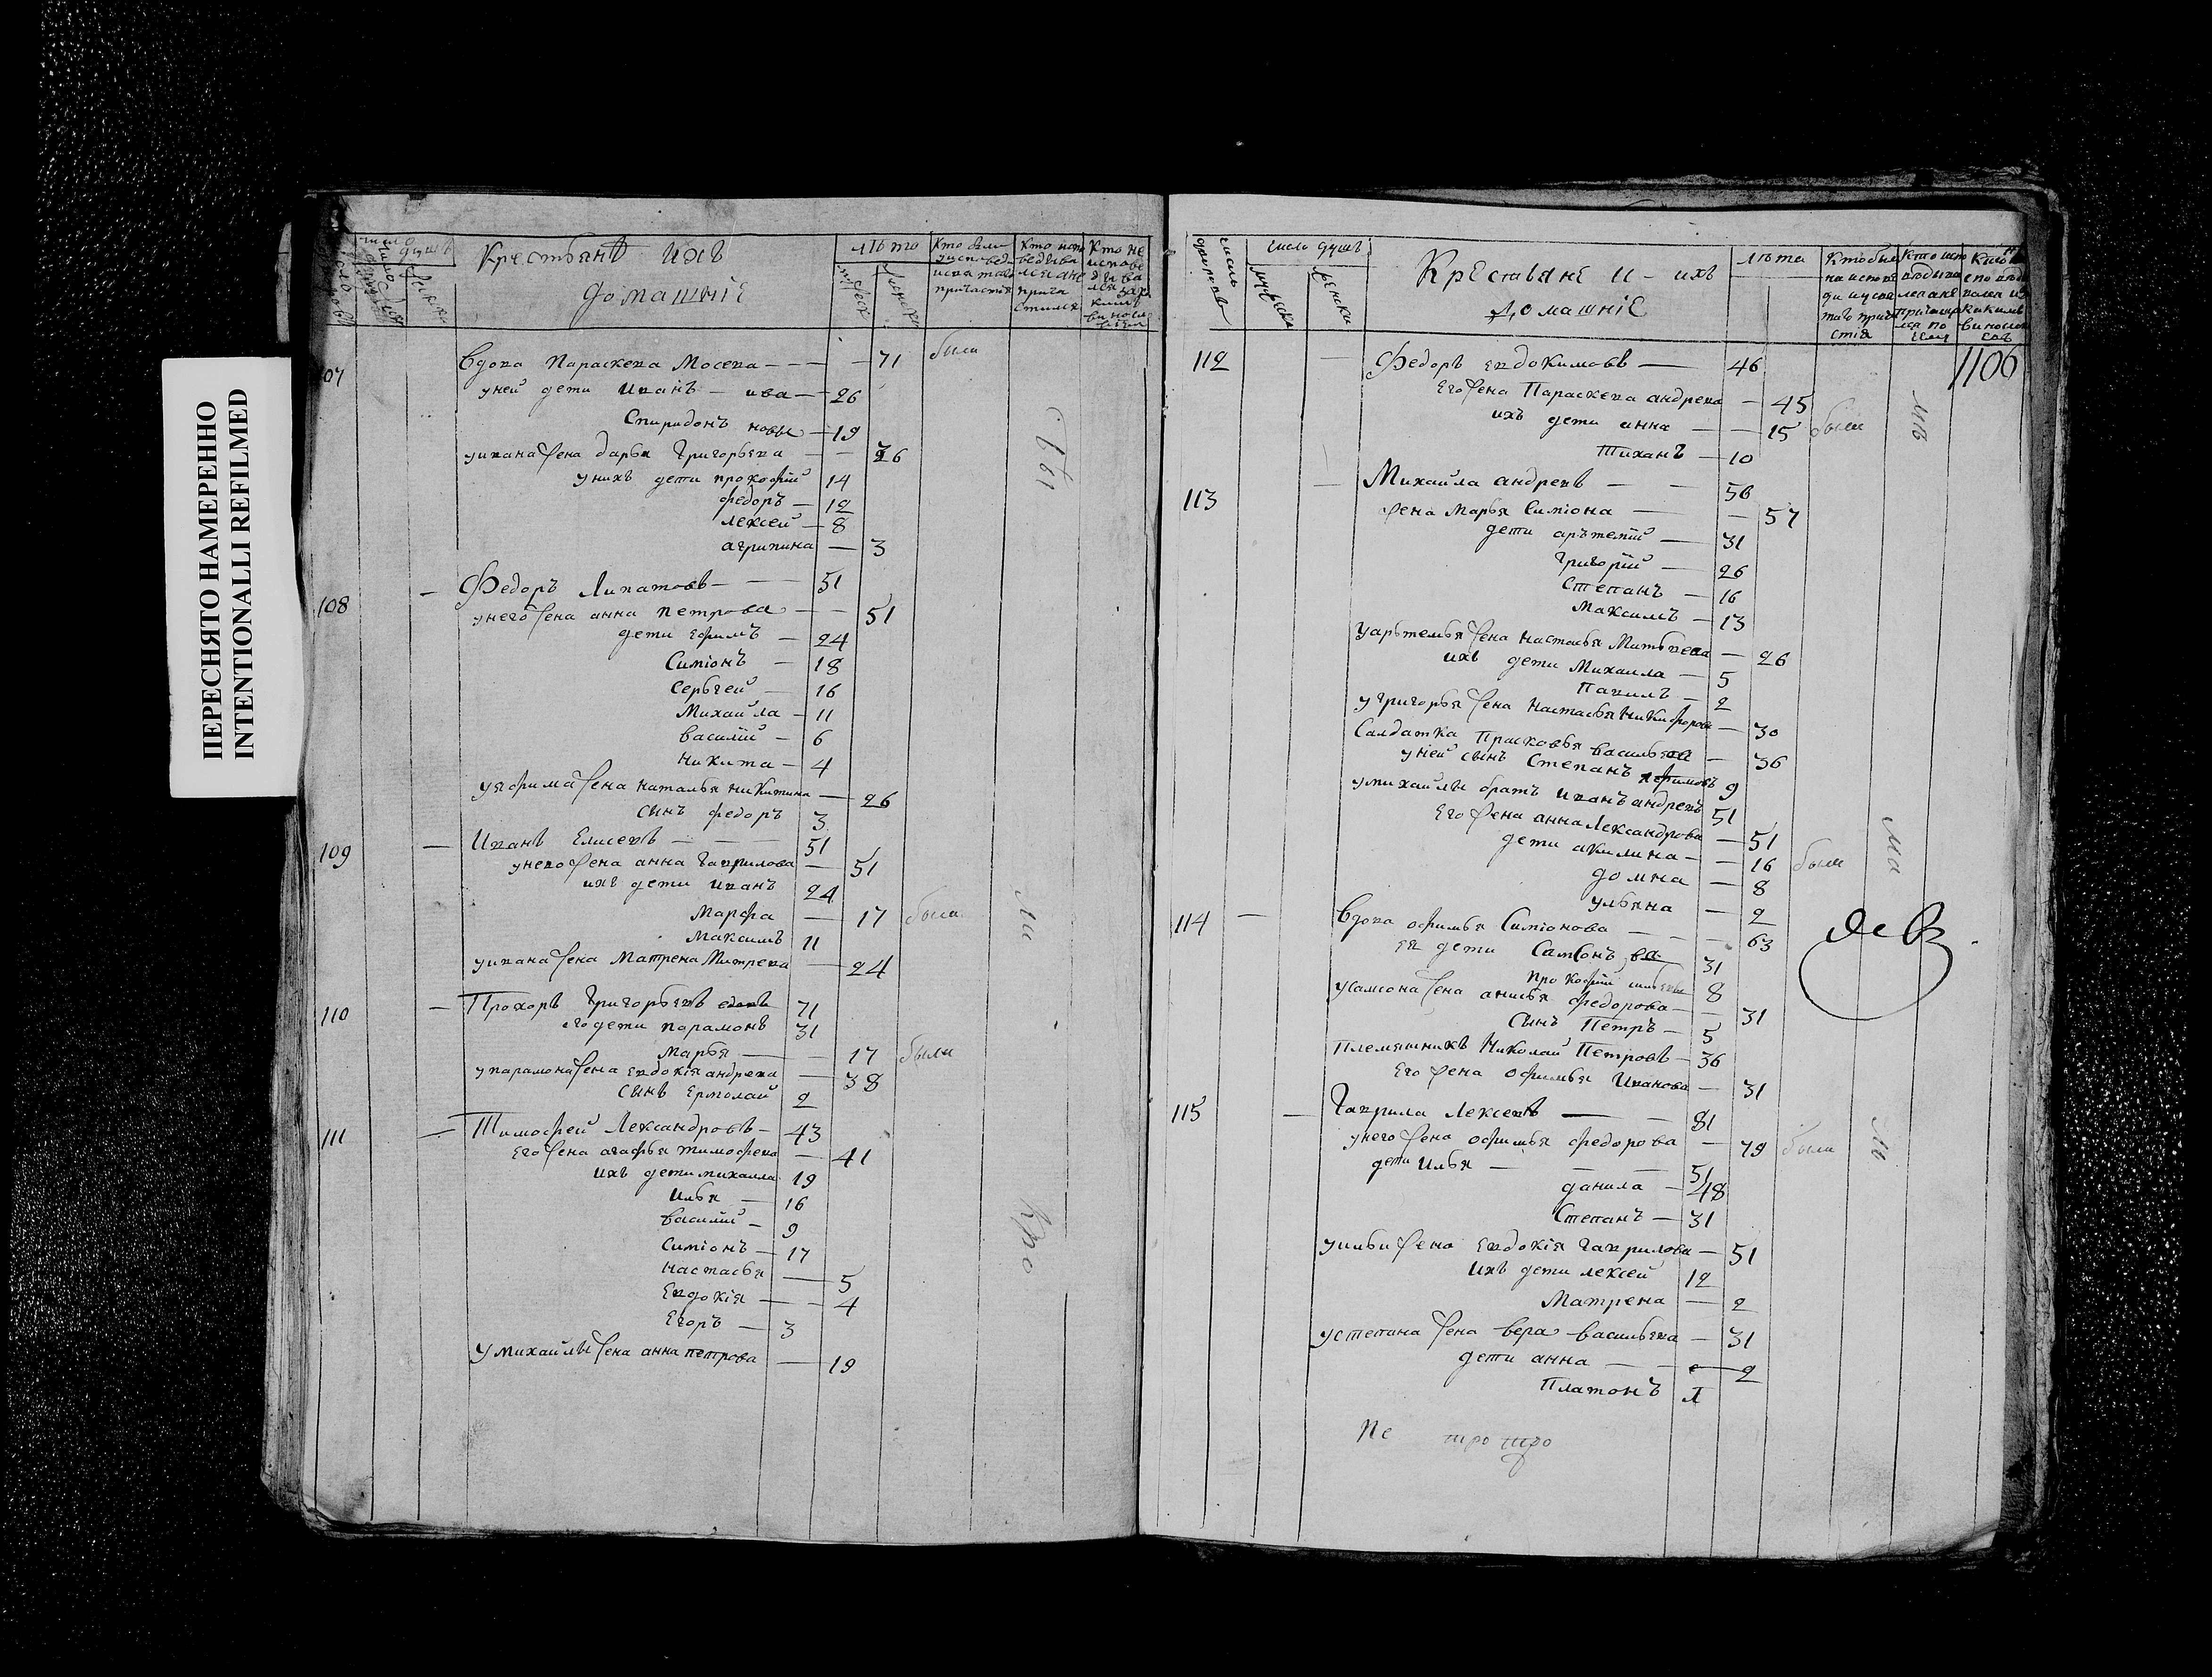 ПЕРЕСНЯТО НАМЕРЕННО
INTENTIONALLI REFILMED
число душъ
Крестьянъ ихъ
домашнiе
лѣто
Кто не
107
вдова Параскева Мосева — 71 были
у ней дети Иванъ — ива — 26
Спиридонъ новы — 19
у ивана жена дарья Григорьева — 26
у нихъ дети прокофiй 14
федоръ — 12
лексей — 8
агрипина — 3
108 — Федоръ Липатовъ — 51
у него жена анна петрова — 51
дети ефимъ — 24
Симiонъ — 18
Серьгей — 16
Михайла — 11
василiй — 6
никита — 4
у яфима жена наталья никитина — 26
сынъ федоръ 3
109 — Иванъ Елисевъ — 51
у него жена анна гаврилова — 51
ихъ дети иванъ 24
Марфа — 17 были
Максимъ 11
у ивана жена Матрена Митрева — 24
110 — Прохоръ Григорьевъ 71
его дети парамонъ 31
Марья — 17 были
у парамона жена евдокiя андрева — 38
сынъ Ермолай 2
111 — Тимофей Лександровъ — 43
Его жена агафья тимофева — 41
ихъ дети михаила 19
Илья — 16
василiй — 9
Симiонъ — 17
настасья — 5
Евдокiя — 4
Егоръ — 3
у михайлы жена анна петрова — 19
число душъ
Крестьяне и — ихъ
домашнiе
лѣта
1106
112 — Федоръ евдокимовъ — 46
Его жена Параскева андрева — 45
ихъ дети анна — 15 были
Тиханъ — 10
113 — Михайла андревъ — 56
жена Марья Симiона — 57
дети арътемiй — 31
Григорiй — 26
Степанъ — 16
Максимъ — 13
У аръемья жена настасья Матвеева — 26
ихъ дети Михаила — 5
Павилъ — 2
у григорья жена настасья Никифорова — 30
Салдатка Прасковья васильева — 36
у ней сынъ Степанъ 9
у михайлы братъ иванъ андревъ 51
Его жена анна Лександрова — 51
дети акилина — 16 были
домна — 8
ульяна — 2
114 — Вдова офимья Симiонова — 63
ея дети Самсонъ 31
прокофiй 8
у самсона жена анисья федорова — 31
Сынъ Петръ — 5
Племяшникъ Николай Петровъ — 36
Его жена офимья Иванова — 31
115 — Гаврила Лексевъ — 81
у него жена офимья федорова — 79 были
дети Илья — 51
данила — 48
Степанъ — 31
у ильи жена Евдокiя гаврилова — 51
Ихъ дети лексей 12
Матрена — 2
у степана жена вера васильева — 31
дети анна — 2
Платонъ